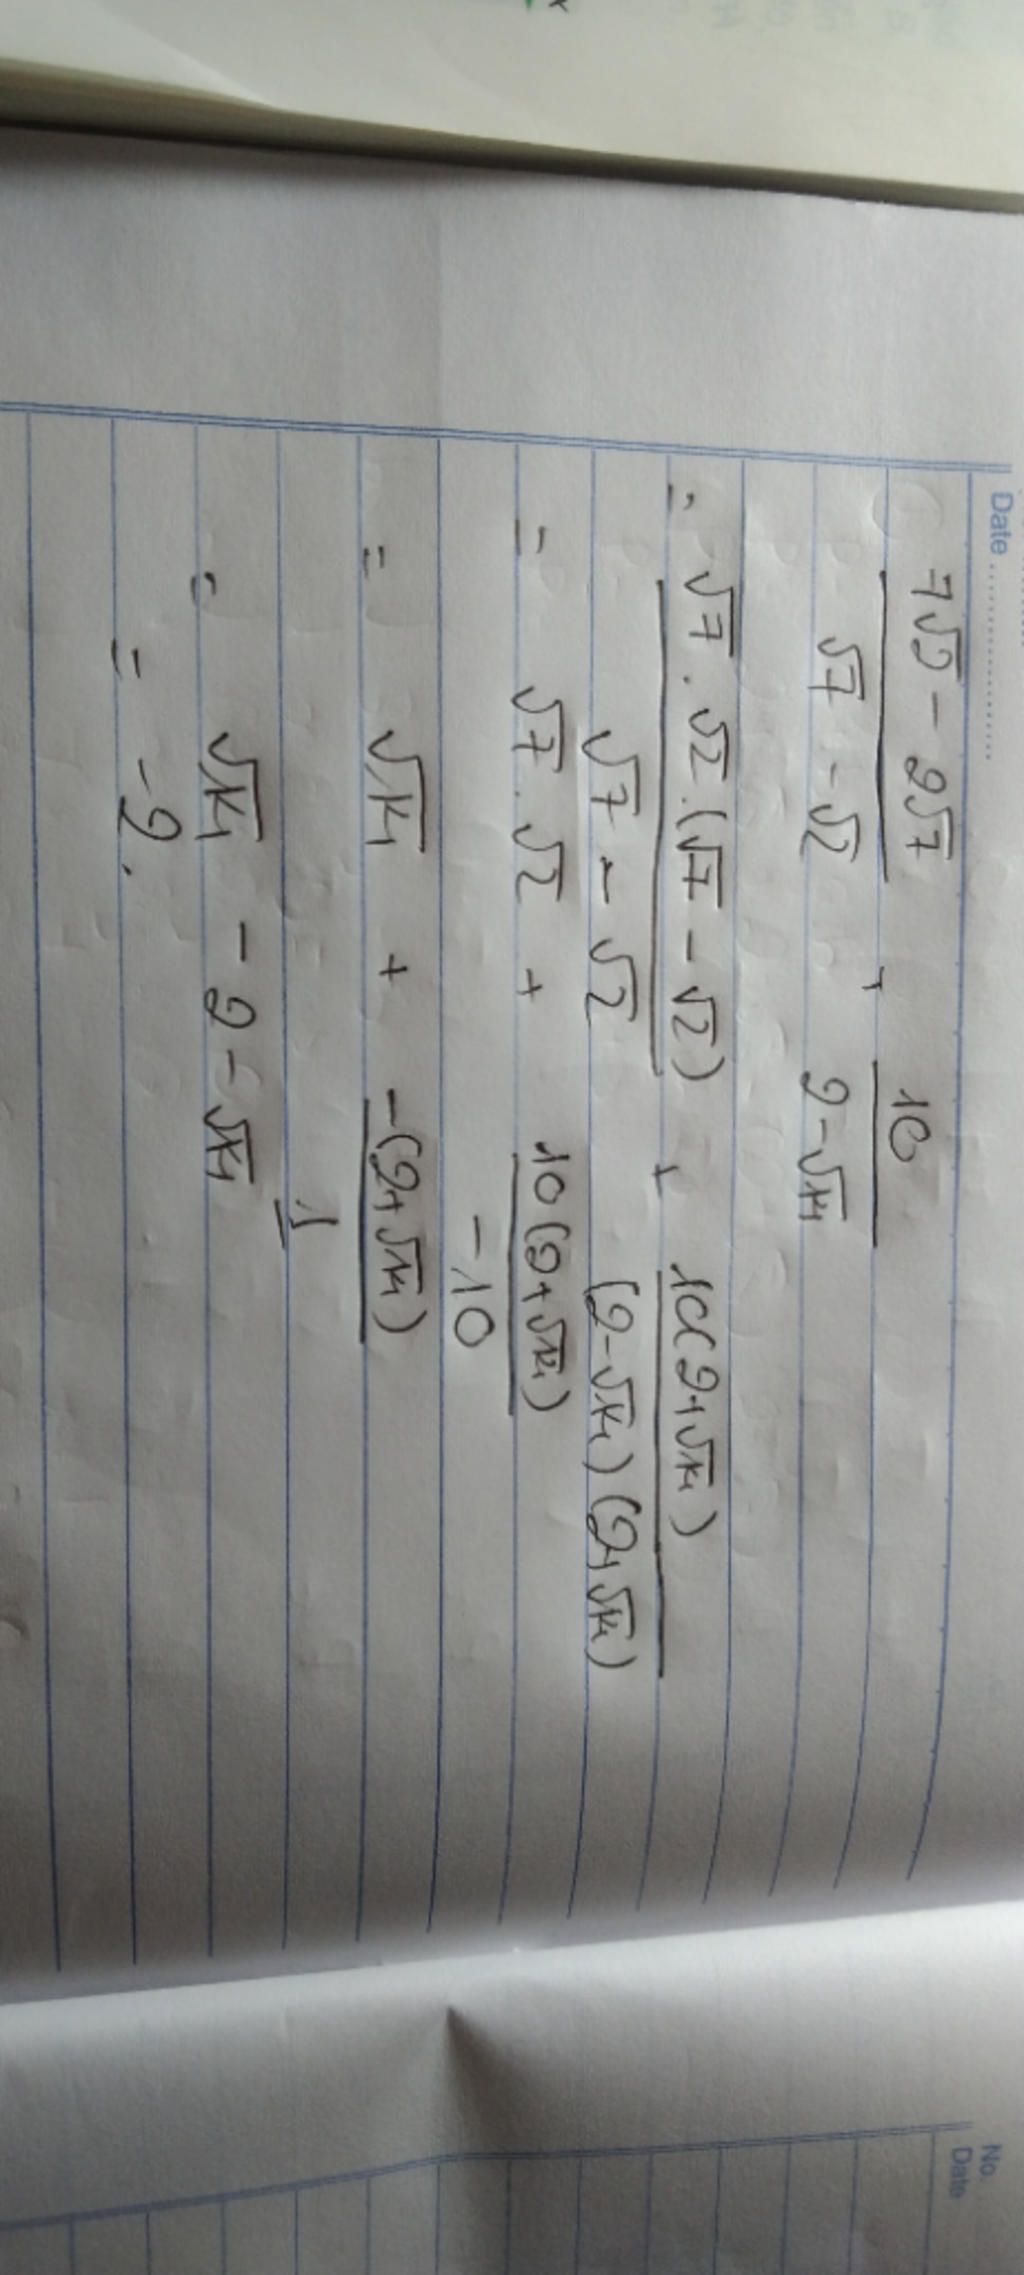 Date ....................
7√2 - 2√7 / √7 - √2 + 10 / 2 - √14
= √7 . √2 . (√7 - √2) / √7 - √2 + 10(2 + √14) / (2 - √14) (2 + √14)
= √7 . √2 + 10(2 + √14) / -10
= √14 + -(2 + √14) / 1
= √14 - 2 - √14
= -2.
No.
Date